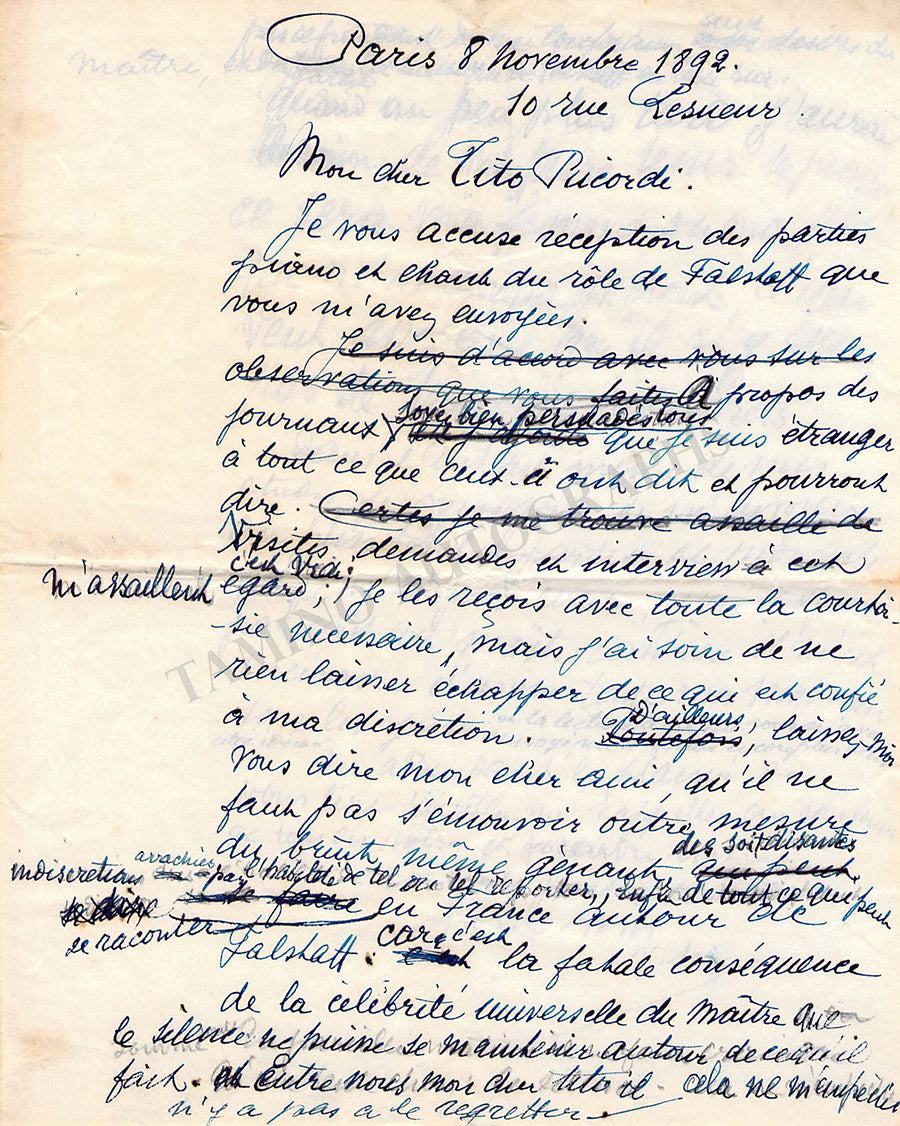 Paris 8 Novembre 1892.
10 rue Lesueur.
Mon cher Tito Ricordi.
Je vous accuse réception des parties
piano et chant du rôle de Falstaff que
vous m'avez envoyées.
Je suis d'accord avec vous sur les
observations que vous faites à propos des
soyez bien persuadés tous
journaux, que je suis étranger
à tout ce que ceux-ci ont dit et pourront
dire. Certes je me trouve assailli de
Visites, demandes et interview à cet
m'assaillent
c'est vrai;
égard; je les reçois avec toute la courtoi-
-sie necessaire, mais j'ai soin de ne
rien laisser échapper de ce qui est confié
D'ailleurs,
à ma discrétion. Toutefois, laissez-moi
vous dire mon cher ami, qu'il ne
faut pas s'émouvoir outre mesure
des soit disantes
du bruit, même gênant qui peut
indiscretions arrachées par l'habileté de tel ou tel reporter, enfin de tout ce qui peut
se dire se faire en France autour de
se raconter
Falstaff. car c'est la fatale conséquence
de la célébrité universelle du Maître que
le silence ne puisse se maintenir autour de ce qu'il
fait. et entre nous mon cher Tito il cela ne m'empêche
n'y a pas a le regretter
TAMINO AUTOGRAPHS
Maître,